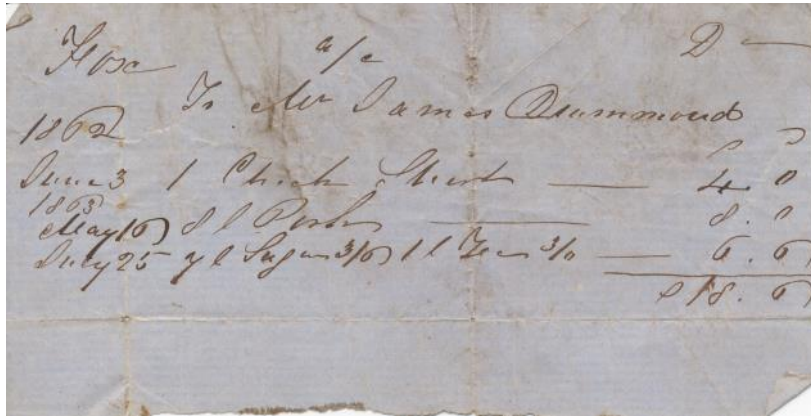 a/c D
To Mr James Drummond
1862
June 3 1 Check Shirt — 4. 0
1863
May 16 8 l Pork — 8. 0
July 25 7 l Sugar 3/6 1 l Tea 3/0 — 6. 6
18. 6